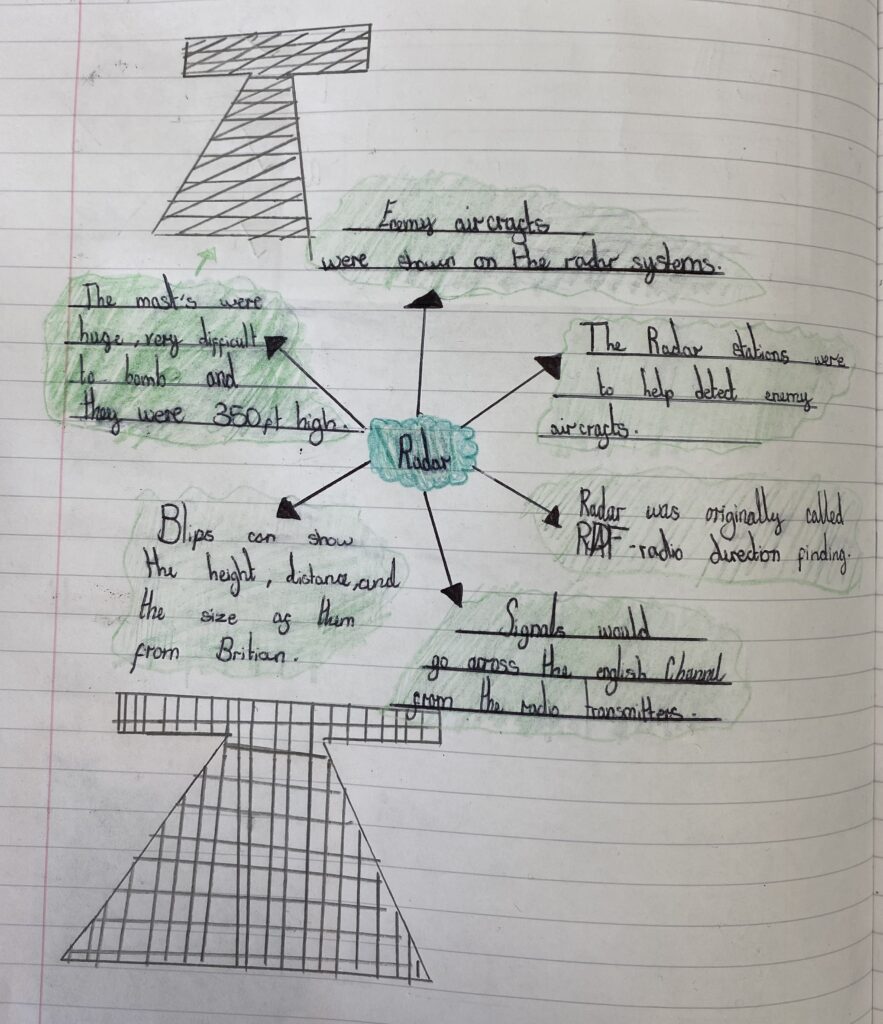 Enemy aircrafts
were shown on the radar systems.
The mast's were
huge, very difficult
to bomb and
they were 350ft high.
The Radar stations were
to help detect enemy
aircrafts.
Radar
Radar was originally called
RAF - radio direction finding.
Blips can show
the height, distance, and
the size of them
from Britian.
Signals would
go across the english Channel
from the radio transmitters.